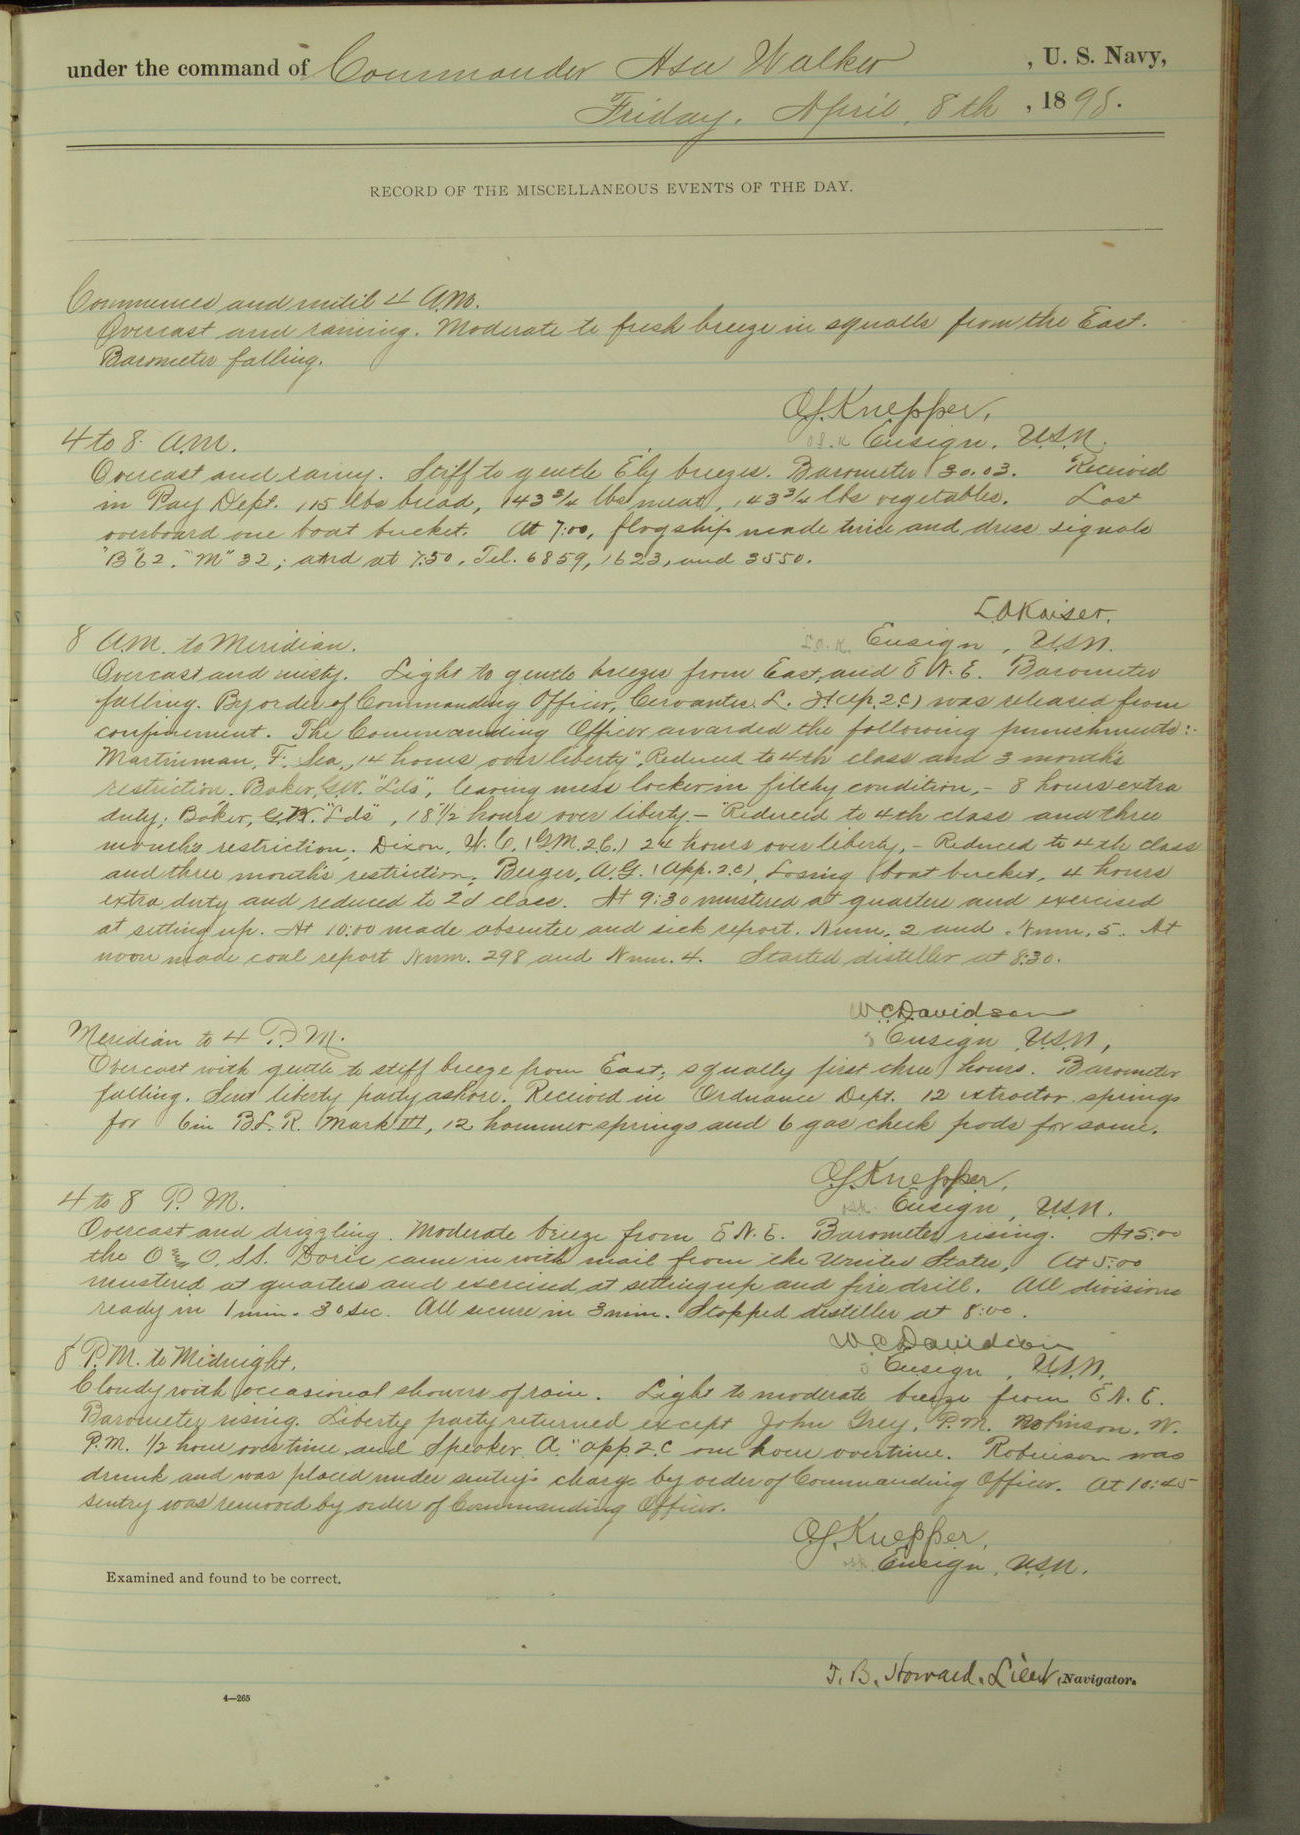 under the command of Commander Asa Walker, U. S. Navy,
Friday, April, 8th, 1898.
RECORD OF THE MISCELLANEOUS EVENTS OF THE DAY.
Commences and until 4 A.M.
Overcast and raining. Moderate to fresh breeze in squalls from the East.
Barometer falling.
O.S. Knepper,
Ensign, U.S.N.
4 to 8 A.M.
Overcast and rainy. Stiff to gentle E'ly breezes. Barometer 30.03. Received
in Pay Dept. 115 lbs bread, 143 3/4 lbs meat, 143 3/4 lbs vegetables. Lost
overboard one boat bucket. At 7:00, flagship made and dress signals
"B" 62. "M" 32; and at 7:50, Tel. 6859, 1623, and 3550.
L.A. Kaiser,
Ensign, U.S.N.
8 A.M. to Meridian.
Overcast and misty. Light to gentle breezes from East, and E.N.E. Barometer
falling. By order of Commanding Officer, Cervantes, L. was released from
confinement. The Commanding Officer awarded the following punishments:-
Martinman, F. Sea, 14 hours over liberty", Reduced to 4th class and 3 months
restriction. Baker, G.W. "Lds", leaving mess locker in filthy condition, - 8 hours extra
duty; Baker, G.W. "Lds", 18 1/2 hours over liberty - Reduced to 4th class and three
month's restriction; Dixon, W.C. (G.M. 2C.) 24 hours over liberty, - Reduced to 4th class
and three month's restriction; Berger, A.G. (App. 2.c), Losing boat bucket, 4 hours
extra duty and reduced to 2d class. At 9:30 mustered at quarters and exercised
at setting up. At 10:00 made absentee and sick report. Num. 2 and Num. 5. At
noon made coal report Num. 298 and Num. 4. Started distiller at 8:30.
W.C. Davidson
Ensign U.S.N.,
Meridian to 4 P.M.
Overcast with gentle to stiff breeze from East; squally first three hours. Barometer
falling. Sent liberty party ashore. Received in Ordnance Dept. 12 extractor springs
for 6 in B.L.R. Mark III, 12 hammer springs and 6 gas check pads for same.
O.S. Knepper,
Ensign, U.S.N.
4 to 8 P.M.
Overcast and drizzling. Moderate breeze from E.N.E. Barometer rising. At 5:00
the O & O. SS. Doric came in with mail from the United States. At 5:00
mustered at quarters and exercised at setting up and fire drill. All divisions
ready in 1 min. 30 sec. All secure in 3 min. Stopped distiller at 8:00.
W.C. Davidson
Ensign, U.S.N.
8 P.M. to Midnight.
Cloudy with occasional showers of rain. Light to moderate breeze from E.N.E.
Barometer rising. Liberty party returned except John Grey, P.M. Robinson, W.
P.M. 1/2 hour overtime and Speaker A. "app. 2c one hour overtime. Robinson was
drunk and was placed under sentry's charge by order of Commanding Officer. At 10:45
sentry was removed by order of Commanding Officer.
O.S. Knepper,
Ensign, U.S.N.
Examined and found to be correct.
T. B. Howard, Lieut, Navigator.
4—265